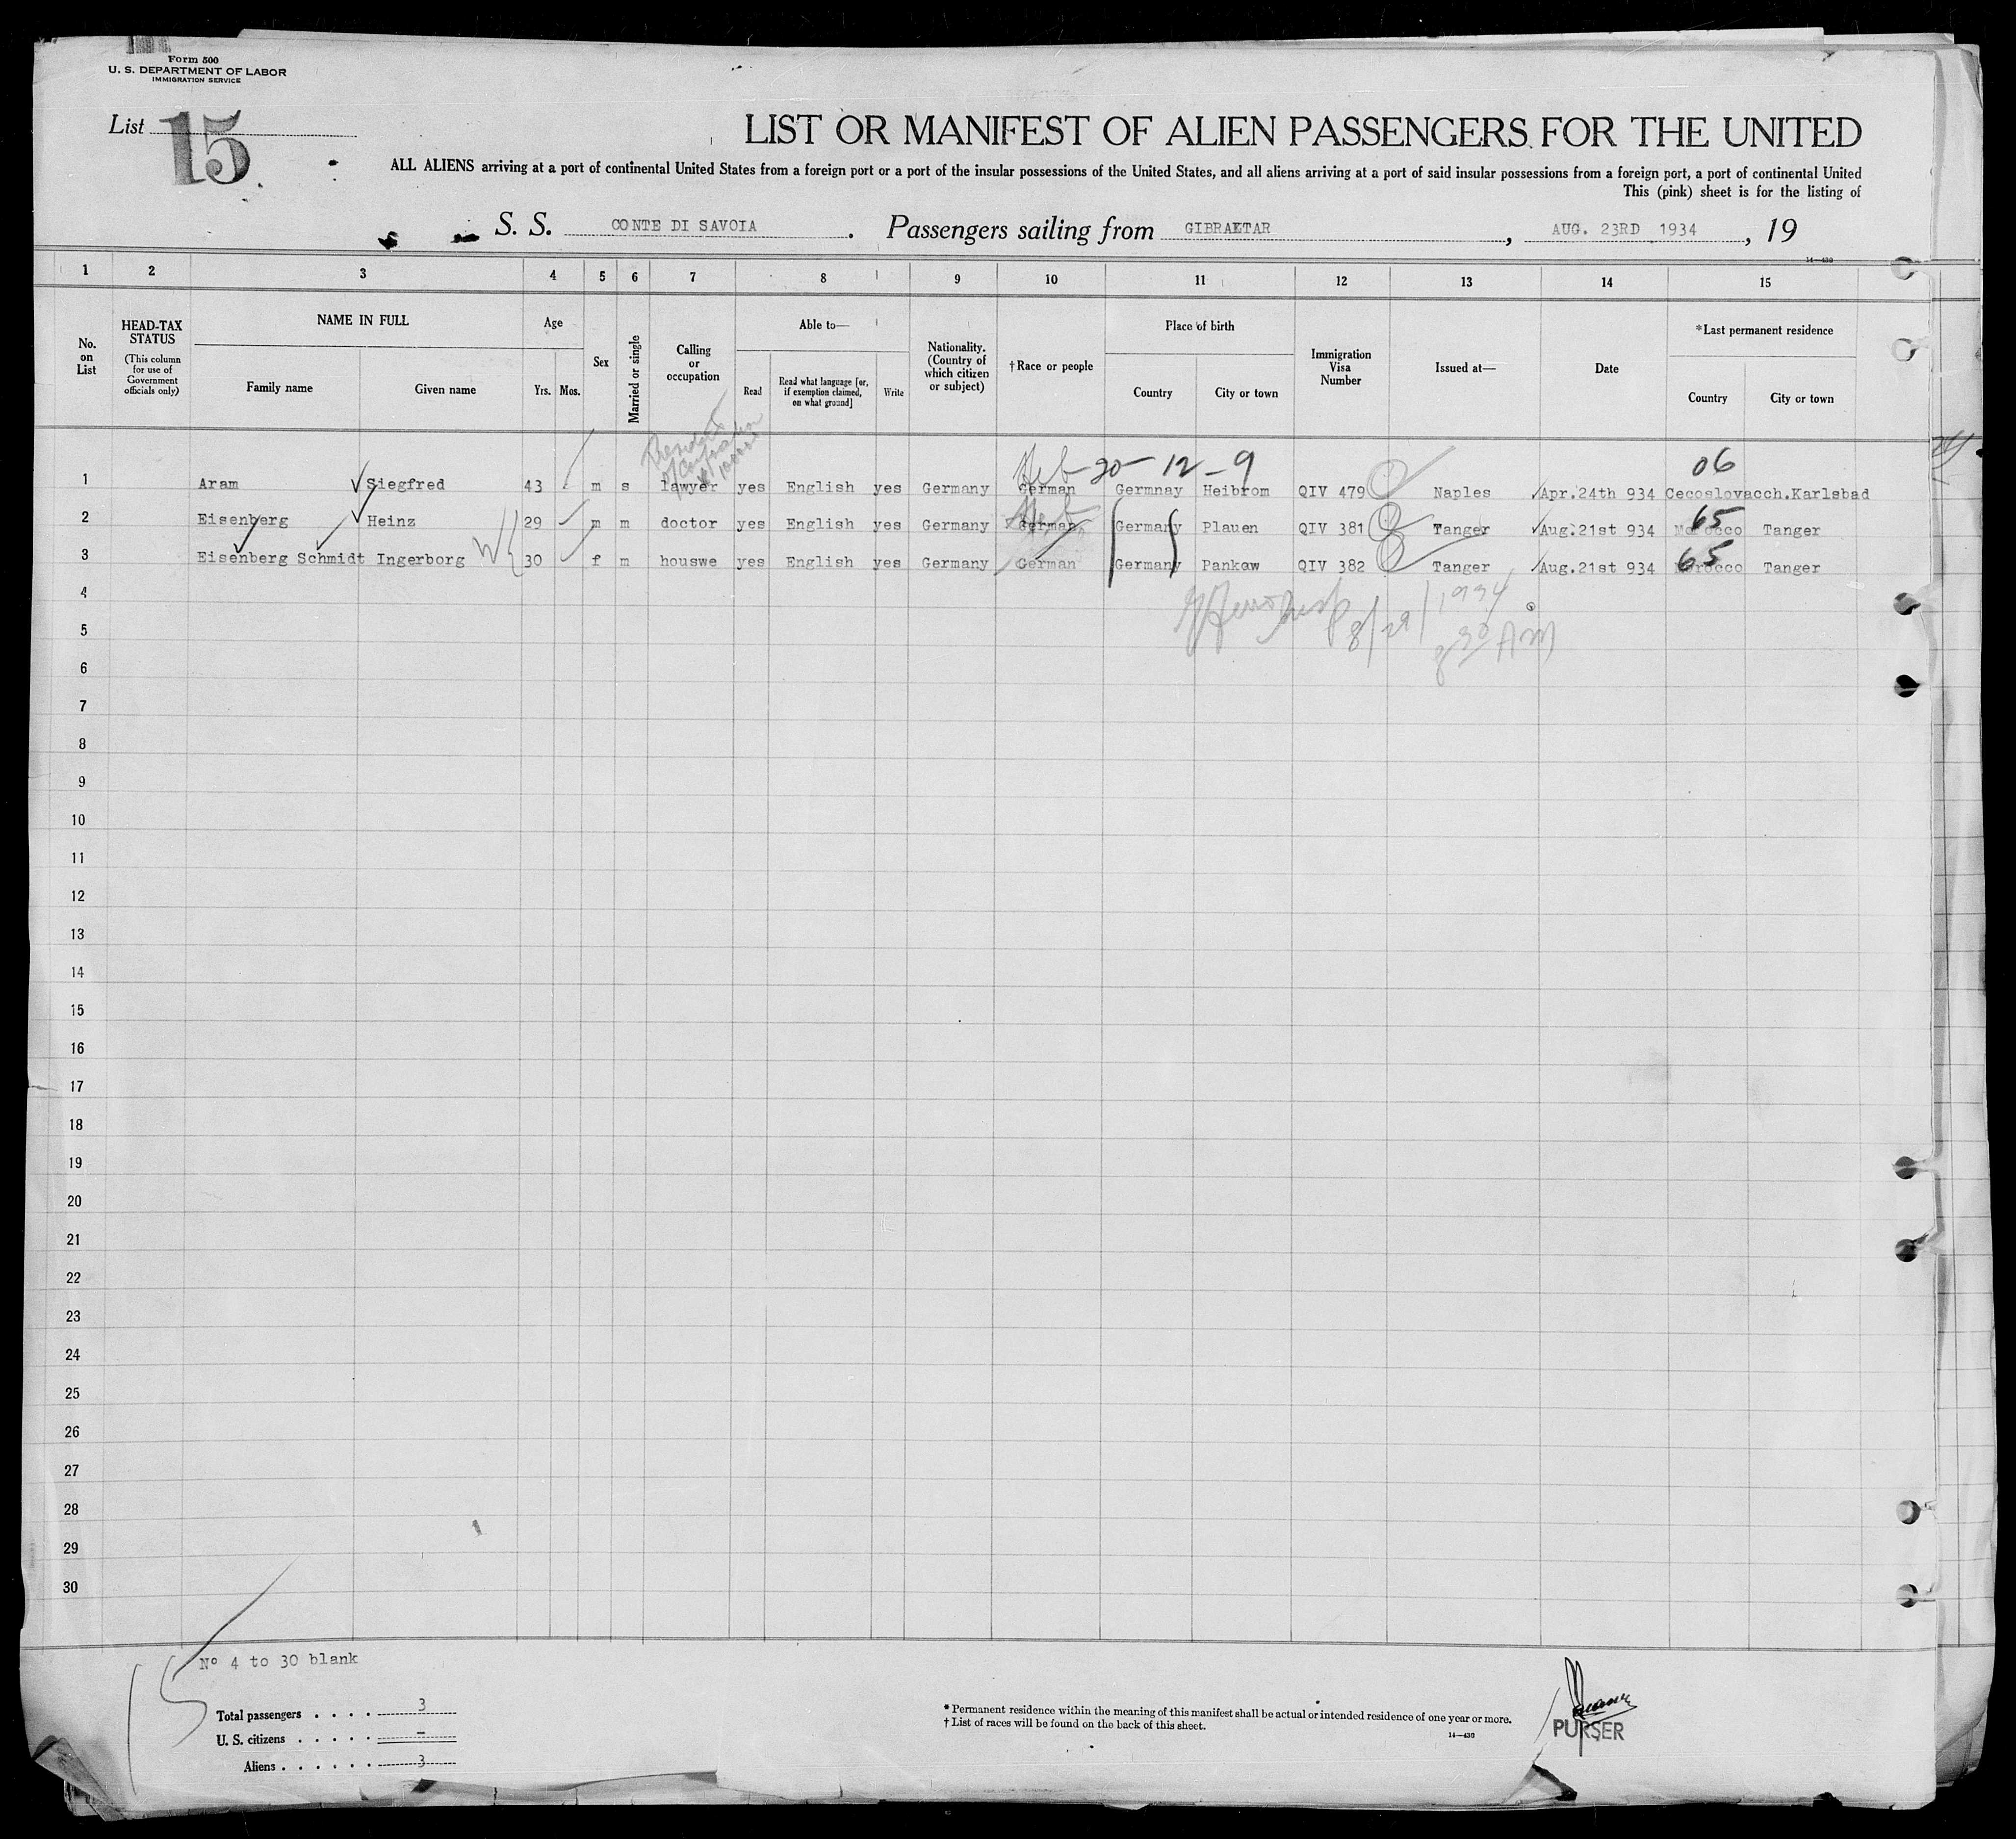 Form 500
U. S. DEPARTMENT OF LABOR
IMMIGRATION SERVICE
List 15
LIST OR MANIFEST OF ALIEN PASSENGERS FOR THE UNITED
ALL ALIENS arriving at a port of continental United States from a foreign port or a port of the insular possessions of the United States, and all aliens arriving at a port of said insular possessions from a foreign port, a port of continental United
This (pink) sheet is for the listing of
S. S. CONTE DI SAVOIA. Passengers sailing from GIBRALTAR, AUG. 23RD 1934, 19
14—430
1 2 3 4 5 6 7 8 9 10 11 12 13 14 15
No. on List
HEAD-TAX STATUS (This column for use of Government officials only)
NAME IN FULL
Family name Given name
Age
Yrs. Mos.
Sex
Married or single
Calling or occupation
Able to—
Read
Read what language [or, if exemption claimed, on what ground]
Write
Nationality. (Country of which citizen or subject)
†Race or people
Place of birth
Country City or town
Immigration Visa Number
Issued at—
Date
*Last permanent residence
Country City or town
Heb 20-12-9 06
1 Aram Siegfred 43 m s lawyer yes English yes Germany German Germnay Heibrom QIV 479 Naples Apr.24th 934 Cecoslovacch.Karlsbad
Heb 65
2 Eisenberg Heinz 29 m m doctor yes English yes Germany German Germany Plauen QIV 381 Tanger Aug.21st 934 Morocco Tanger
65
3 Eisenberg Schmidt Ingerborg 30 f m houswe yes English yes Germany German Germany Pankow QIV 382 Tanger Aug.21st 934 Morocco Tanger
8/29/1934
8 30 AM
4
5
6
7
8
9
10
11
12
13
14
15
16
17
18
19
20
21
22
23
24
25
26
27
28
29
30
Nº 4 to 30 blank
Total passengers . . . . 3
U. S. citizens . . . . . –
Aliens . . . . . . 3
* Permanent residence within the meaning of this manifest shall be actual or intended residence of one year or more.
† List of races will be found on the back of this sheet.
14—430
PURSER